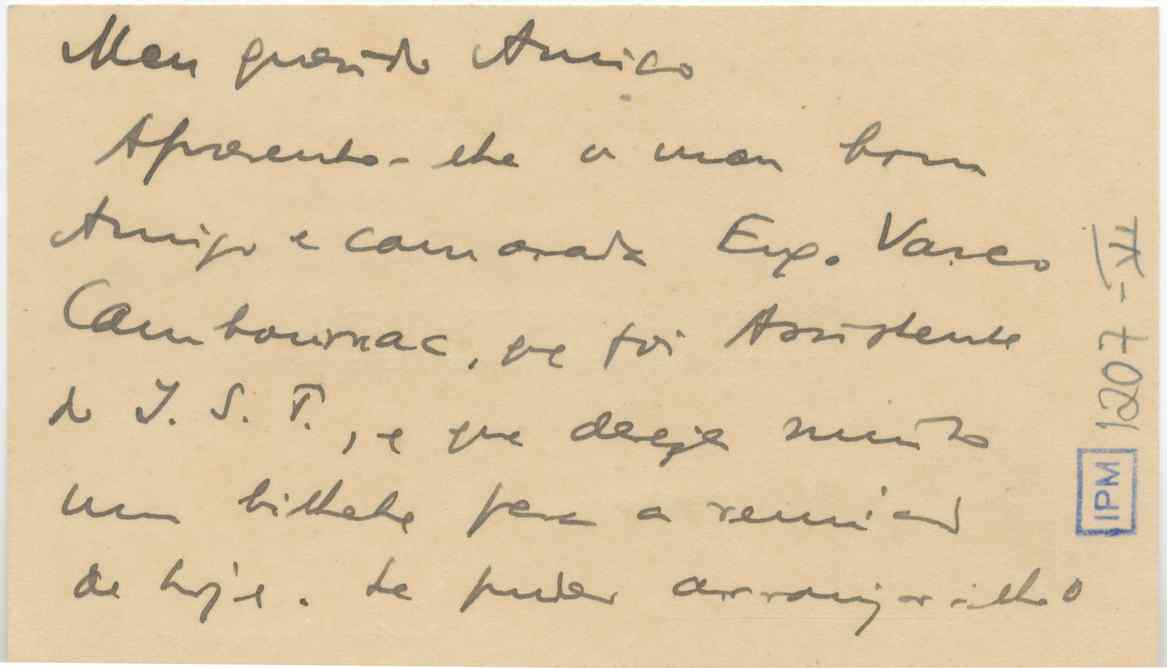 Meu querido Amigo
Apresento-lhe o meu bom
Amigo e camarada Eng. Vasco
Cambournac, que foi Assistente
do I. S. T., e que deseja muito
um bilhete para a reunião
de hoje. Se puder arranjar-lho
IPM 1207-VI